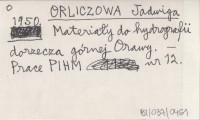 ORLICZOWA Jadwiga
1950.
Materiały do hydrografii
dorzecza górnej Orawy. —
Prace PIHM nr 12.
BI/037/0451